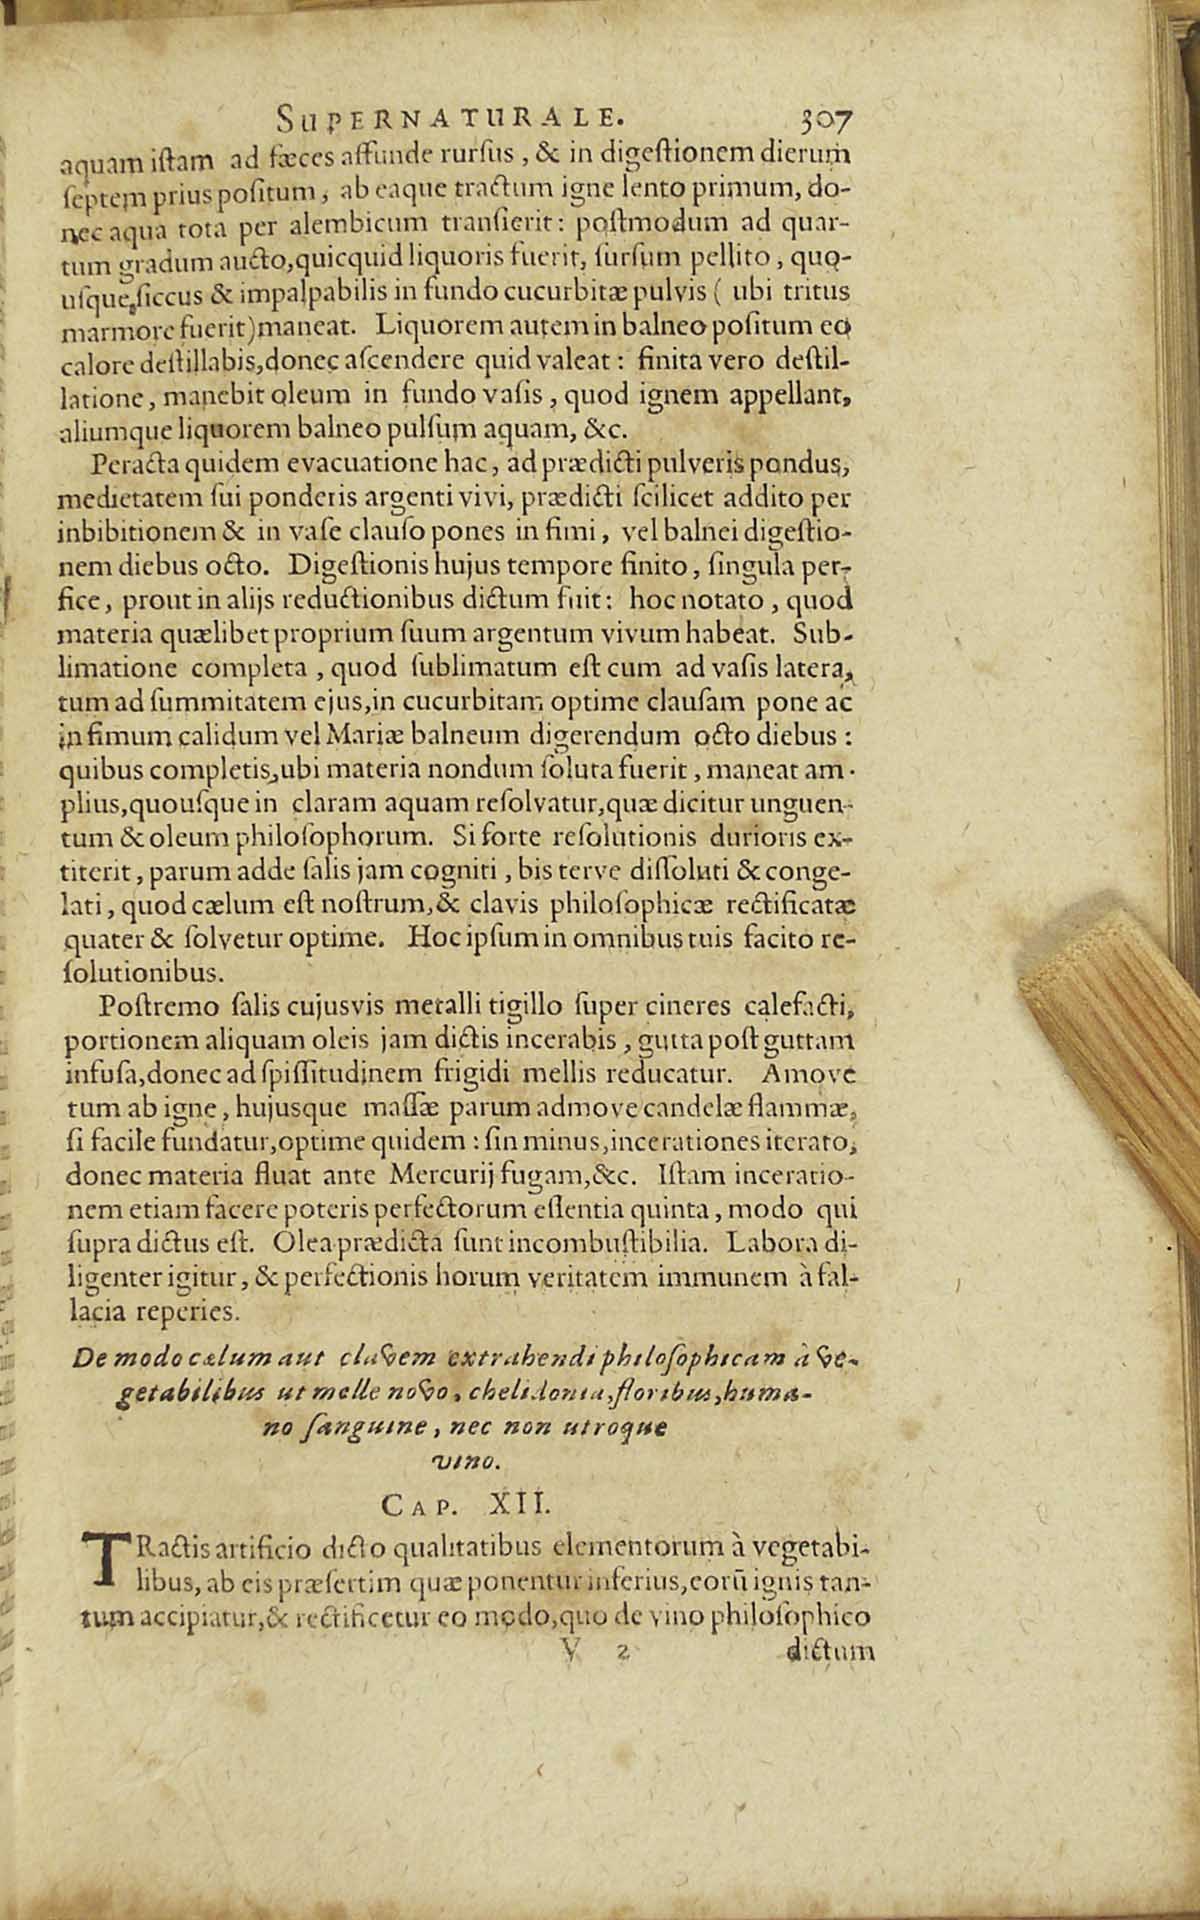 SUPERNATURALE. 307
aquam iſtam ad fæces affunde rurſus, & in digeſtionem dierum
ſeptem prius poſitum, ab eaque tractum igne lento primum, do-
nec aqua tota per alembicum tranſierit: poſtmodum ad quar-
tum gradum aucto, quicquid liquoris fuerit, ſurſum pellito, quo-
uſque, ſiccus & impalpabilis in fundo cucurbitæ pulvis ( ubi tritus
marmore fuerit) maneat. Liquorem autem in balneo poſitum eo
calore deſtillabis, donec aſcendere quid valeat: finita vero deſtil-
latione, manebit oleum in fundo vaſis, quod ignem appellant,
aliumque liquorem balneo pulſum aquam, &c.
Peracta quidem evacuatione hac, ad prædicti pulveris pondus,
medietatem ſui ponderis argenti vivi, prædicti ſcilicet addito per
inbibitionem & in vaſe clauſo pones in fimi, vel balnei digeſtio-
nem diebus octo. Digeſtionis hujus tempore finito, ſingula per-
fice, prout in alijs reductionibus dictum fuit: hoc notato, quod
materia quælibet proprium ſuum argentum vivum habeat. Sub-
limatione completa, quod ſublimatum eſt cum ad vaſis latera,
tum ad ſummitatem ejus, in cucurbitam optime clauſam pone ac
in fimum calidum vel Mariæ balneum digerendum octo diebus:
quibus completis, ubi materia nondum ſoluta fuerit, maneat am-
plius, quouſque in claram aquam reſolvatur, quæ dicitur unguen-
tum & oleum philoſophorum. Si forte reſolutionis durioris ex-
titerit, parum adde ſalis jam cogniti, bis terve diſſoluti & conge-
lati, quod cælum eſt noſtrum, & clavis philoſophicæ rectificatæ
quater & ſolvetur optime. Hoc ipſum in omnibus tuis facito re-
ſolutionibus.
Poſtremo ſalis cujusvis metalli tigillo ſuper cineres calefacti,
portionem aliquam oleis jam dictis incerabis, gutta poſt guttam
infuſa, donec ad ſpiſſitudinem frigidi mellis reducatur. Amove
tum ab igne, hujusque maſſæ parum admove candelæ flammæ,
ſi facile fundatur, optime quidem: ſin minus, incerationes iterato,
donec materia fluat ante Mercurij fugam, &c. Iſtam inceratio-
nem etiam facere poteris perfectorum eſſentia quinta, modo qui
ſupra dictus eſt. Olea prædicta ſunt incombuſtibilia. Labora di-
ligenter igitur, & perfectionis horum veritatem immunem à fal-
lacia reperies.
De modo cælum aut clavem extrahendi philoſophicam à ve-
getabilibus ut melle novo, chelidonia, floribus, huma-
no ſanguine, nec non utroque
vino.
CAP. XII.
TRactis artificio dicto qualitatibus elementorum à vegetabi-
libus, ab eis præſertim quæ ponentur inferius, eorũ ignis tan-
tum accipiatur, & rectificetur eo modo, quo de vino philoſophico
V 2 dictum